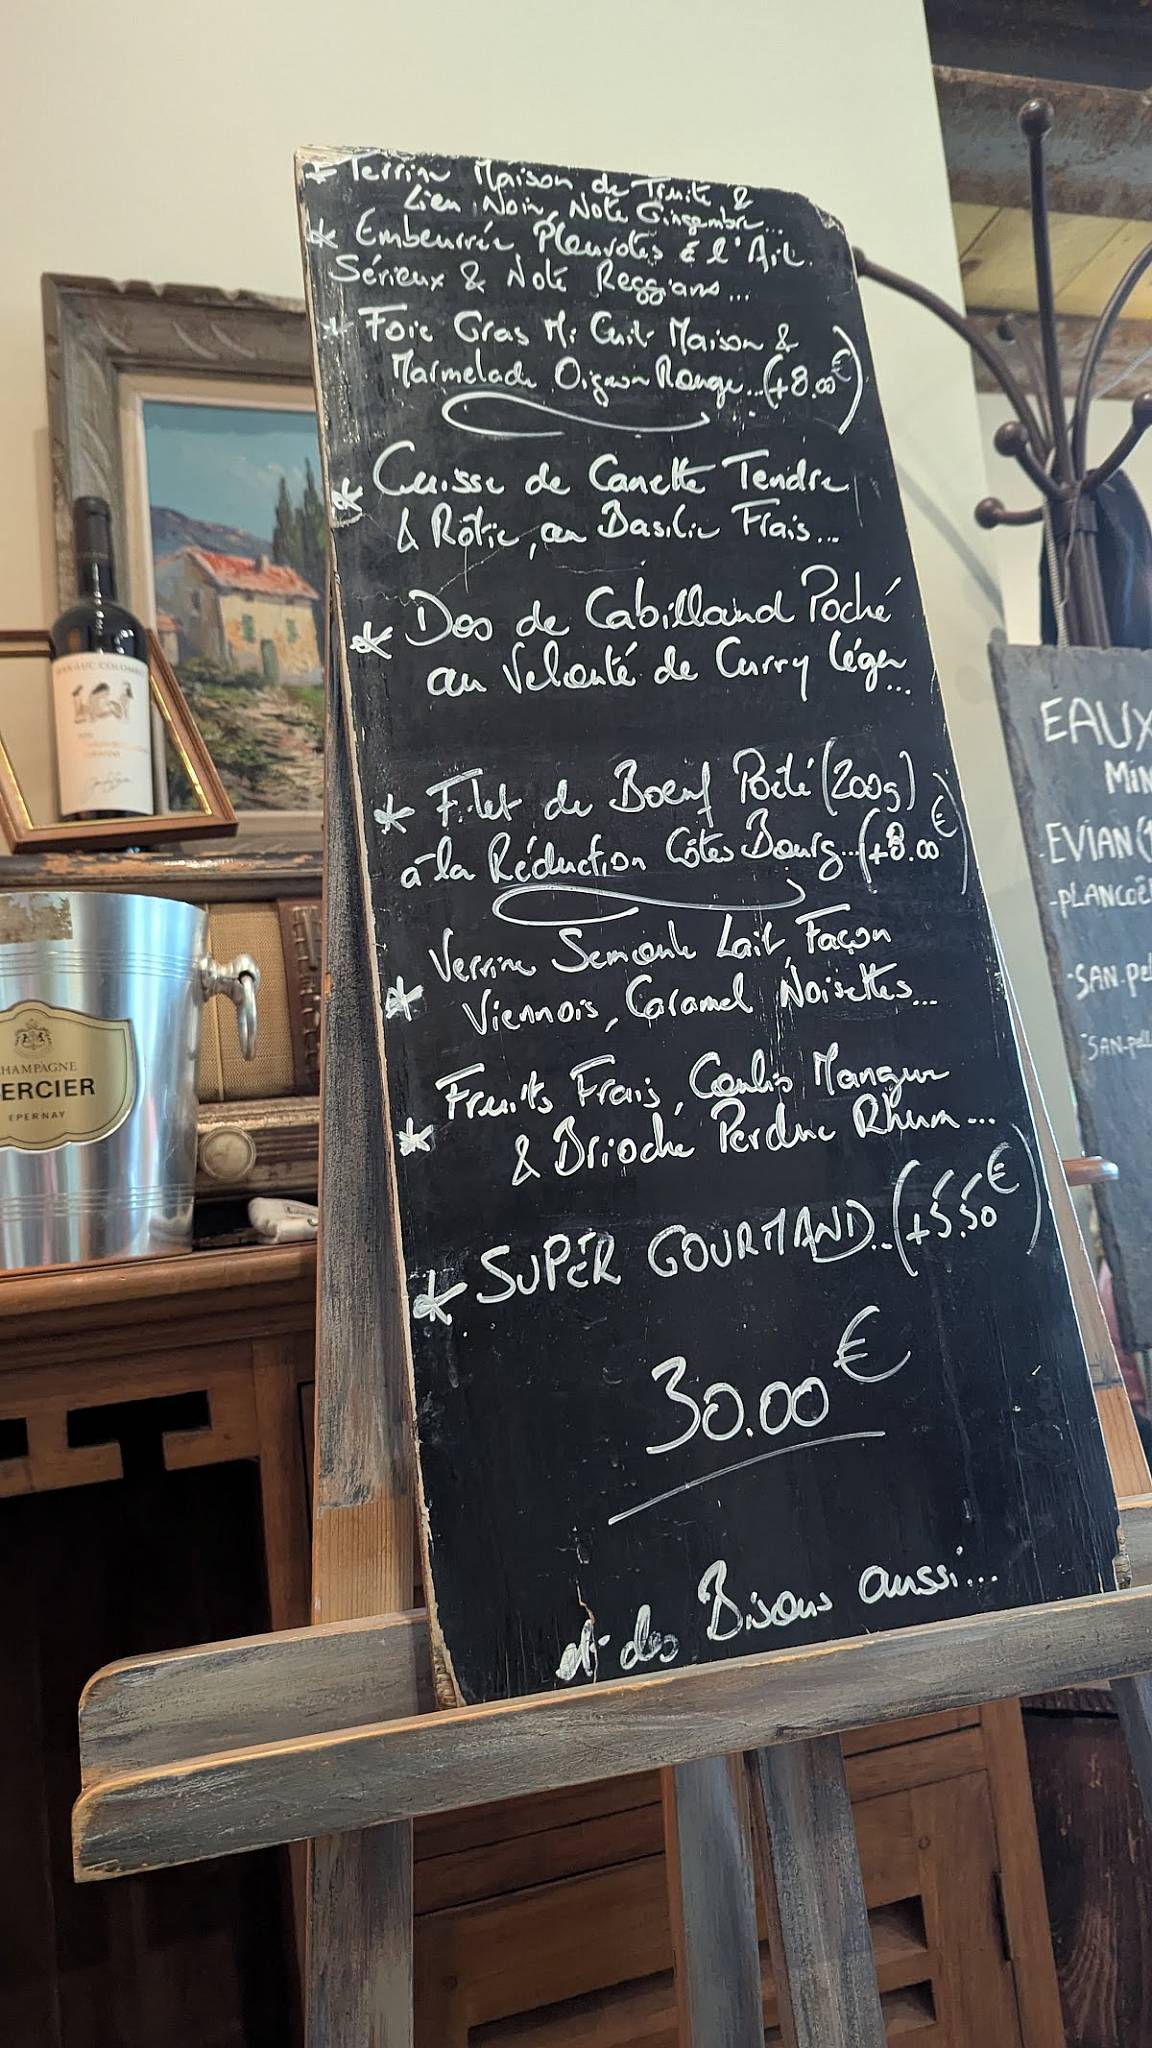 * Terrine Maison de Truite &
Lieu Noir, Note Gingembre...
* Embeurrée Pleurotes & l'Ail.
Sérieux & Note Reggiano...
* Foie Gras Mi Cuit Maison &
Marmelade Oignon Rouge...(+8.00€)
* Cuisse de Canette Tendre
& Rôtie, au Basilic Frais...
* Dos de Cabillaud Poché
au Velouté de Curry léger...
* Filet de Boeuf Poêlé (200g)
à la Réduction Côtes Bourg...(+8.00€)
* Verrine Semoule Lait Façon
Viennois, Caramel Noisettes...
* Fruits Frais, Coulis Mangue
& Brioche Perdue Rhum...
* SUPER GOURMAND...(+5.50€)
30.00€
et des Bisous aussi...
JEAN-LUC COLOMBO
CHAMPAGNE
MERCIER
EPERNAY
EAUX
MIN
-EVIAN (1
-PLANCOË
-SAN-pel
-SAN-pell